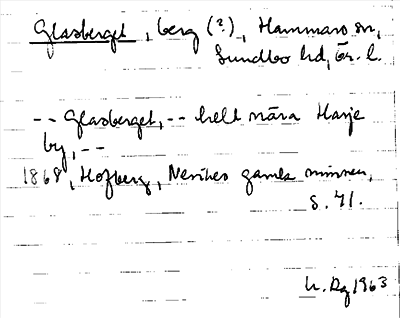 Glasberget, berg (?), Hammars sn,
Sundbo hd, Ör. l.
-- Glasberget, -- helt nära Harje
by, --
1868, Hofberg, Nerikes gamla minnen,
s. 41.
1963